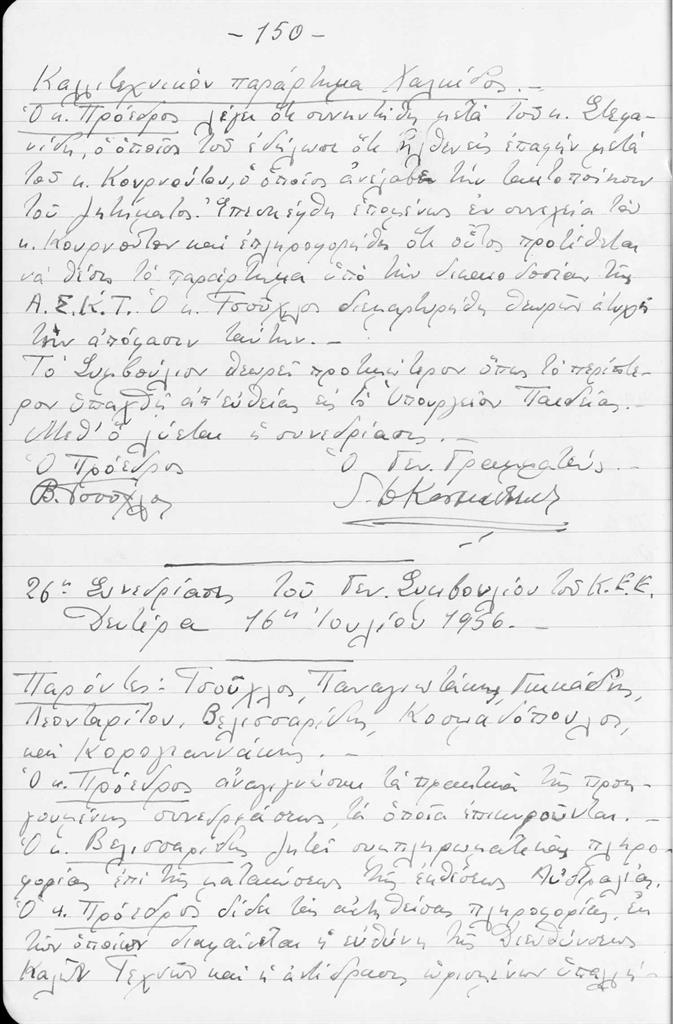 - 150 -
Καλλιτεχνικὸν παράρτημα Χαλκίδος. -
Ὁ κ. Πρόεδρος λέγει ὅτι συνηντήθη μετὰ τοῦ κ. Στεφα-
νίδη, ὁ ὁποῖος τοῦ ἐδήλωσε ὅτι ἦλθεν εἰς ἐπαφὴν μετὰ
τοῦ κ. Κουρνούτου, ὁ ὁποῖος ἀνέλαβε τὴν τακτοποίησιν
τοῦ ζητήματος. Ἐπεσκέφθη ἑπομένως ἐν συνεχείᾳ τὸν
κ. Κουρνοῦτον καὶ ἐπληροφορήθη ὅτι οὗτος προτίθεται
νὰ θέσῃ τὸ παράρτημα ὑπὸ τὴν δικαιοδοσίαν τῆς
Α.Σ.Κ.Τ. Ὁ κ. Τσοῦχλος διεμαρτυρήθη θεωρῶν ἀτυχῆ
τὴν ἀπόφασιν ταύτην. -
Τὸ Συμβούλιον θεωρεῖ προτιμώτερον ὅπως τὸ περίπτε-
ρον ὑπαχθῇ ἀπ' εὐθείας εἰς τὸ Ὑπουργεῖον Παιδείας. -
Μεθ' ὃ λύεται ἡ συνεδρίασις. -
Ὁ Πρόεδρος Ὁ Γεν. Γραμματεύς. -
Β. Τσοῦχλος
26η Συνεδρίασις τοῦ Γεν. Συμβουλίου τοῦ Κ.Ε.Ε.
Δευτέρα 16η Ἰουλίου 1956. -
Παρόντες: Τσοῦχλος, Παναγιωτάκης, Γιακάδης,
Λεονταρίτου, Βελισσαρίδης, Κοσμαδόπουλος,
καὶ Κορογιαννάκης. -
Ὁ κ. Πρόεδρος ἀναγιγνώσκει τὰ πρακτικὰ τῆς προη-
γουμένης συνεδριάσεως, τὰ ὁποῖα ἐπικυροῦνται. -
Ὁ κ. Βελισσαρίδης ζητεῖ συμπληρωματικὰς πληρο-
φορίας ἐπὶ τῆς ματαιώσεως τῆς ἐκθέσεως Αὐστραλίας.
Ὁ κ. Πρόεδρος δίδει τὰς αἰτηθείσας πληροφορίας, ἐκ
τῶν ὁποίων διαφαίνεται ἡ εὐθύνη τῆς Διευθύνσεως
Καλῶν Τεχνῶν καὶ ἡ ἀντίδρασις ὡρισμένων ὑπαλλή-